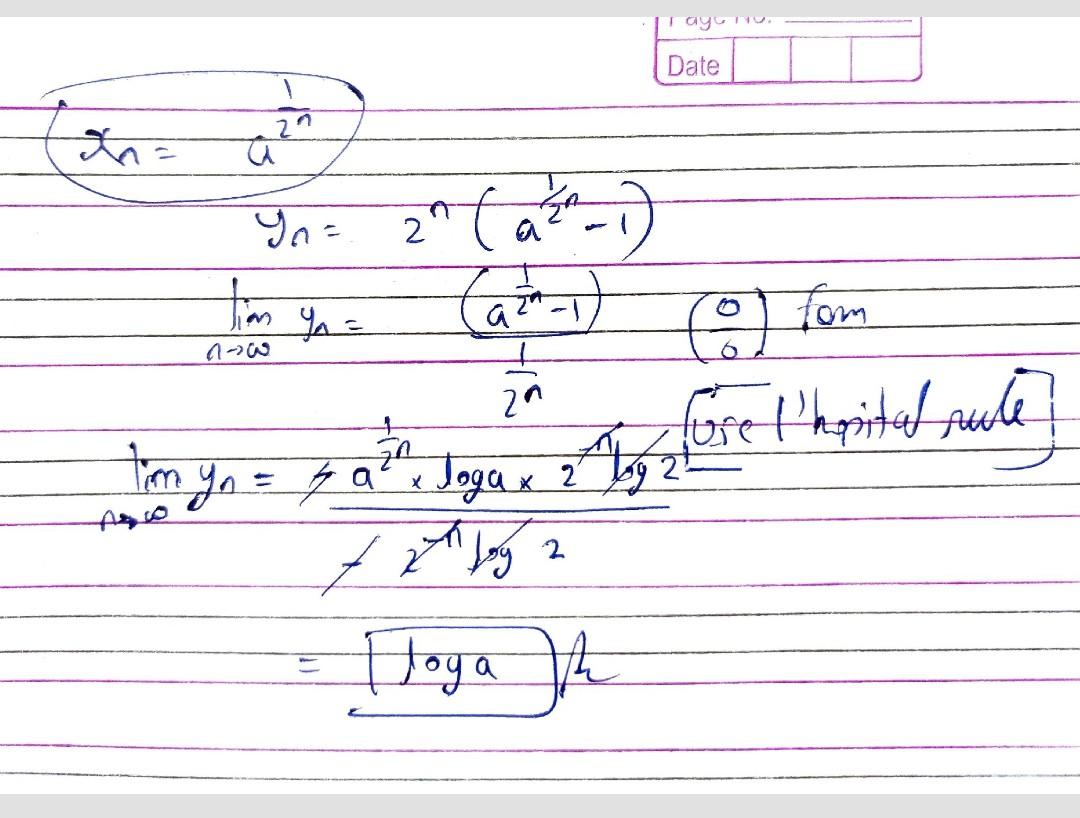 Page No.
Date
xₙ = a^(1/2ⁿ)
yₙ = 2ⁿ (a^(1/2ⁿ) - 1)
lim n→∞ yₙ = (a^(1/2ⁿ) - 1) / (1/2ⁿ) (0/0) fom
[use l'hopital rule]
lim n→∞ yₙ = - a^(1/2ⁿ) × log a × 2⁻ⁿ log 2 / - 2⁻ⁿ log 2
= log a